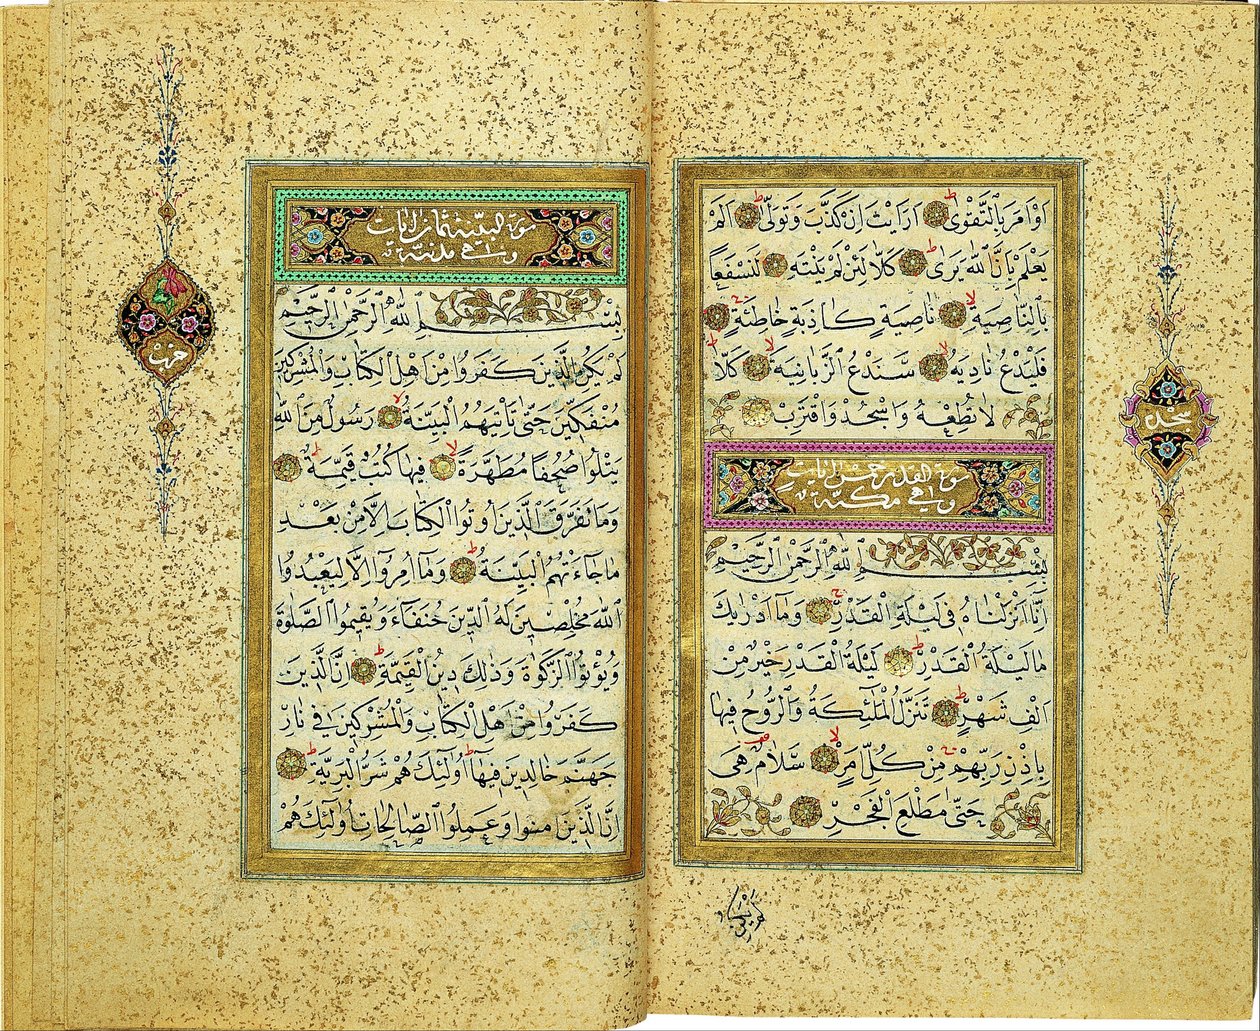 اَوْ اَمَرَ بِالتَّقْوٰى اَرَاَيْتَ اِنْ كَذَّبَ وَتَوَلّٰى اَلَمْ
يَعْلَمْ بِاَنَّ اللّٰهَ يَرٰى كَلَّا لَئِنْ لَمْ يَنْتَهِ لَنَسْفَعًا
بِالنَّاصِيَةِ نَاصِيَةٍ كَاذِبَةٍ خَاطِئَةٍ
فَلْيَدْعُ نَادِيَهُ سَنَدْعُ الزَّبَانِيَةَ كَلَّا
لَا تُطِعْهُ وَاسْجُدْ وَاقْتَرِبْ
سجده
سورة القدر خمس ايات
وهي مكية
بِسْمِ اللّٰهِ الرَّحْمٰنِ الرَّحِيمِ
اِنَّا اَنْزَلْنَاهُ فِى لَيْلَةِ الْقَدْرِ وَمَا اَدْرٰيكَ
مَا لَيْلَةُ الْقَدْرِ لَيْلَةُ الْقَدْرِ خَيْرٌ مِنْ
اَلْفِ شَهْرٍ تَنَزَّلُ الْمَلٰٓئِكَةُ وَالرُّوحُ فِيهَا
بِاِذْنِ رَبِّهِمْ مِنْ كُلِّ اَمْرٍ سَلَامٌ هِىَ
حَتّٰى مَطْلَعِ الْفَجْرِ
لم يكن
سورة البينة ثمان ايات
وهي مدنية
بِسْمِ اللّٰهِ الرَّحْمٰنِ الرَّحِيمِ
لَمْ يَكُنِ الَّذِينَ كَفَرُوا مِنْ اَهْلِ الْكِتَابِ وَالْمُشْرِكِينَ
مُنْفَكِّينَ حَتّٰى تَاْتِيَهُمُ الْبَيِّنَةُ رَسُولٌ مِنَ اللّٰهِ
يَتْلُوا صُحُفًا مُطَهَّرَةً فِيهَا كُتُبٌ قَيِّمَةٌ
وَمَا تَفَرَّقَ الَّذِينَ اُوتُوا الْكِتَابَ اِلَّا مِنْ بَعْدِ
مَا جَٓاءَتْهُمُ الْبَيِّنَةُ وَمَٓا اُمِرُٓوا اِلَّا لِيَعْبُدُوا
اللّٰهَ مُخْلِصِينَ لَهُ الدِّينَ حُنَفَٓاءَ وَيُقِيمُوا الصَّلٰوةَ
وَيُؤْتُوا الزَّكٰوةَ وَذٰلِكَ دِينُ الْقَيِّمَةِ اِنَّ الَّذِينَ
كَفَرُوا مِنْ اَهْلِ الْكِتَابِ وَالْمُشْرِكِينَ فِى نَارِ
جَهَنَّمَ خَالِدِينَ فِيهَا اُولٰٓئِكَ هُمْ شَرُّ الْبَرِيَّةِ
اِنَّ الَّذِينَ اٰمَنُوا وَعَمِلُوا الصَّالِحَاتِ اُولٰٓئِكَ هُمْ
حزب